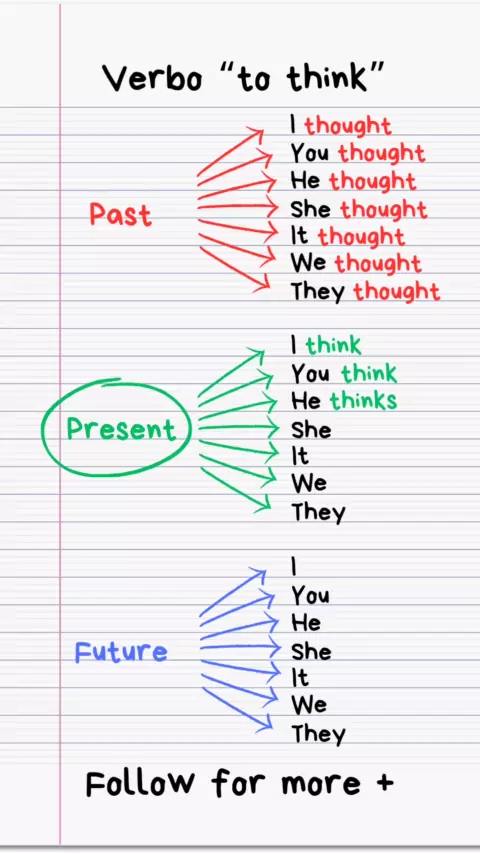 Verbo “to think”
Past
I thought
You thought
He thought
She thought
It thought
We thought
They thought
Present
I think
You think
He thinks
She
It
We
They
Future
I
You
He
She
It
We
They
Follow for more +